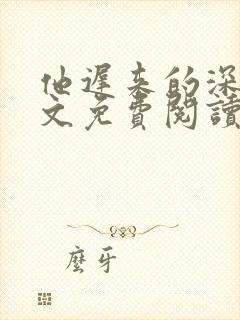 他遲來的深
文免費閱讀
麼牙